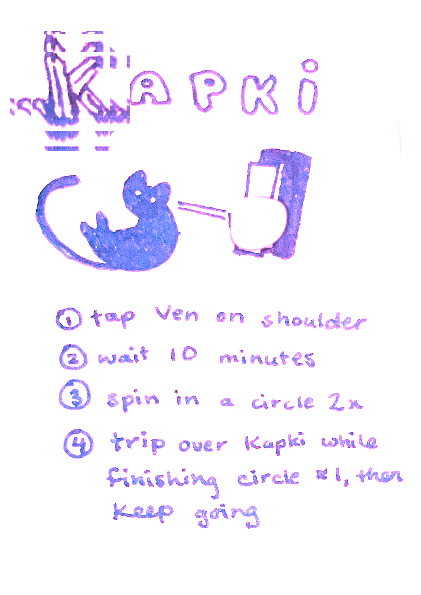 Kapki
1 tap Ven on shoulder
2 wait 10 minutes
3 spin in a circle 2x
4 trip over Kapki while
finishing circle #1, then
keep going